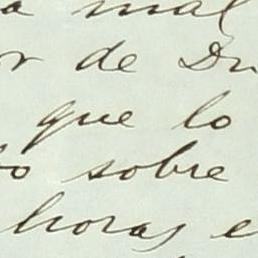 a mal
r de Du
que lo
bo sobre
horas e